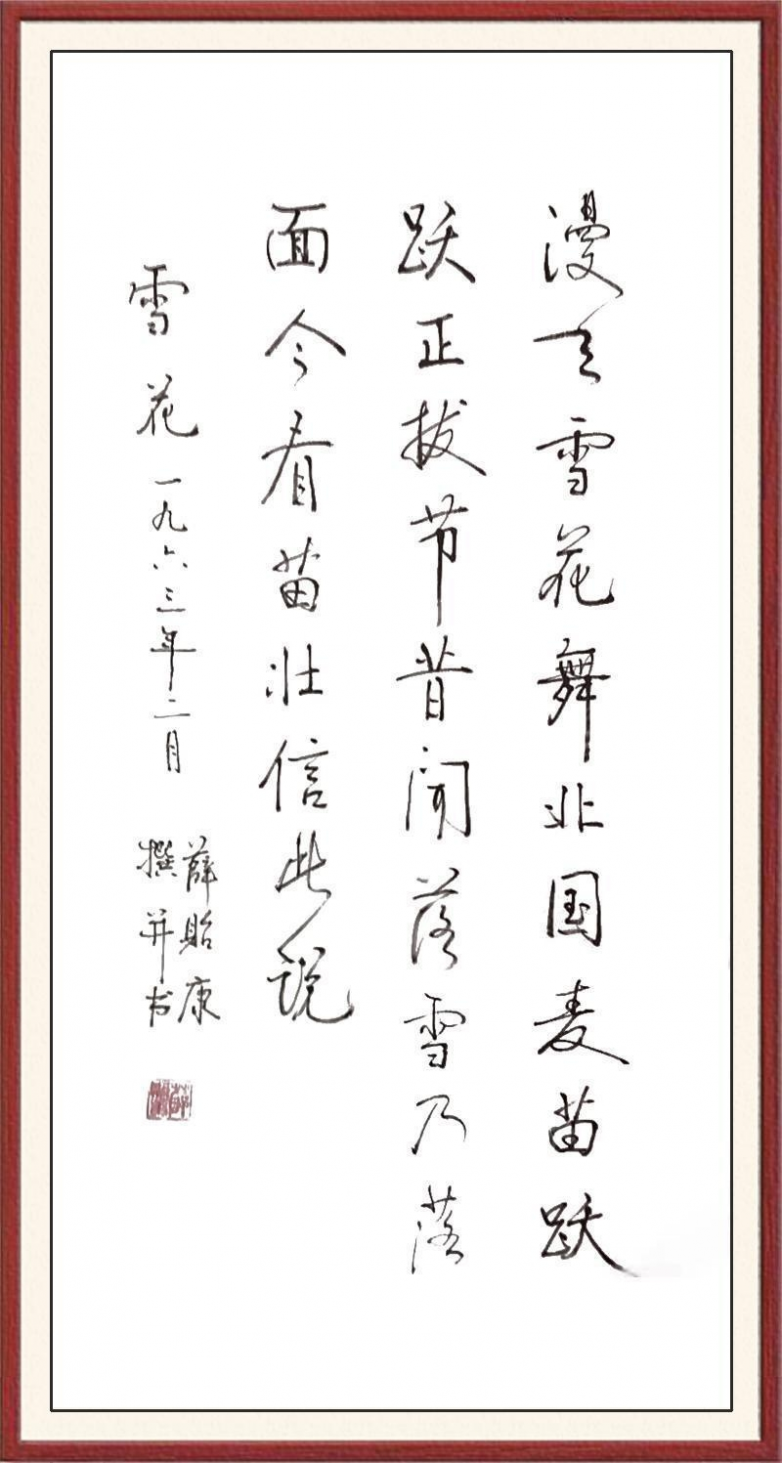 漫天雪花舞北国麦苗跃
跃正拔节昔闻落雪乃落
面今看苗壮信此说
雪花 一九六三年二月
薛贻康
撰并书